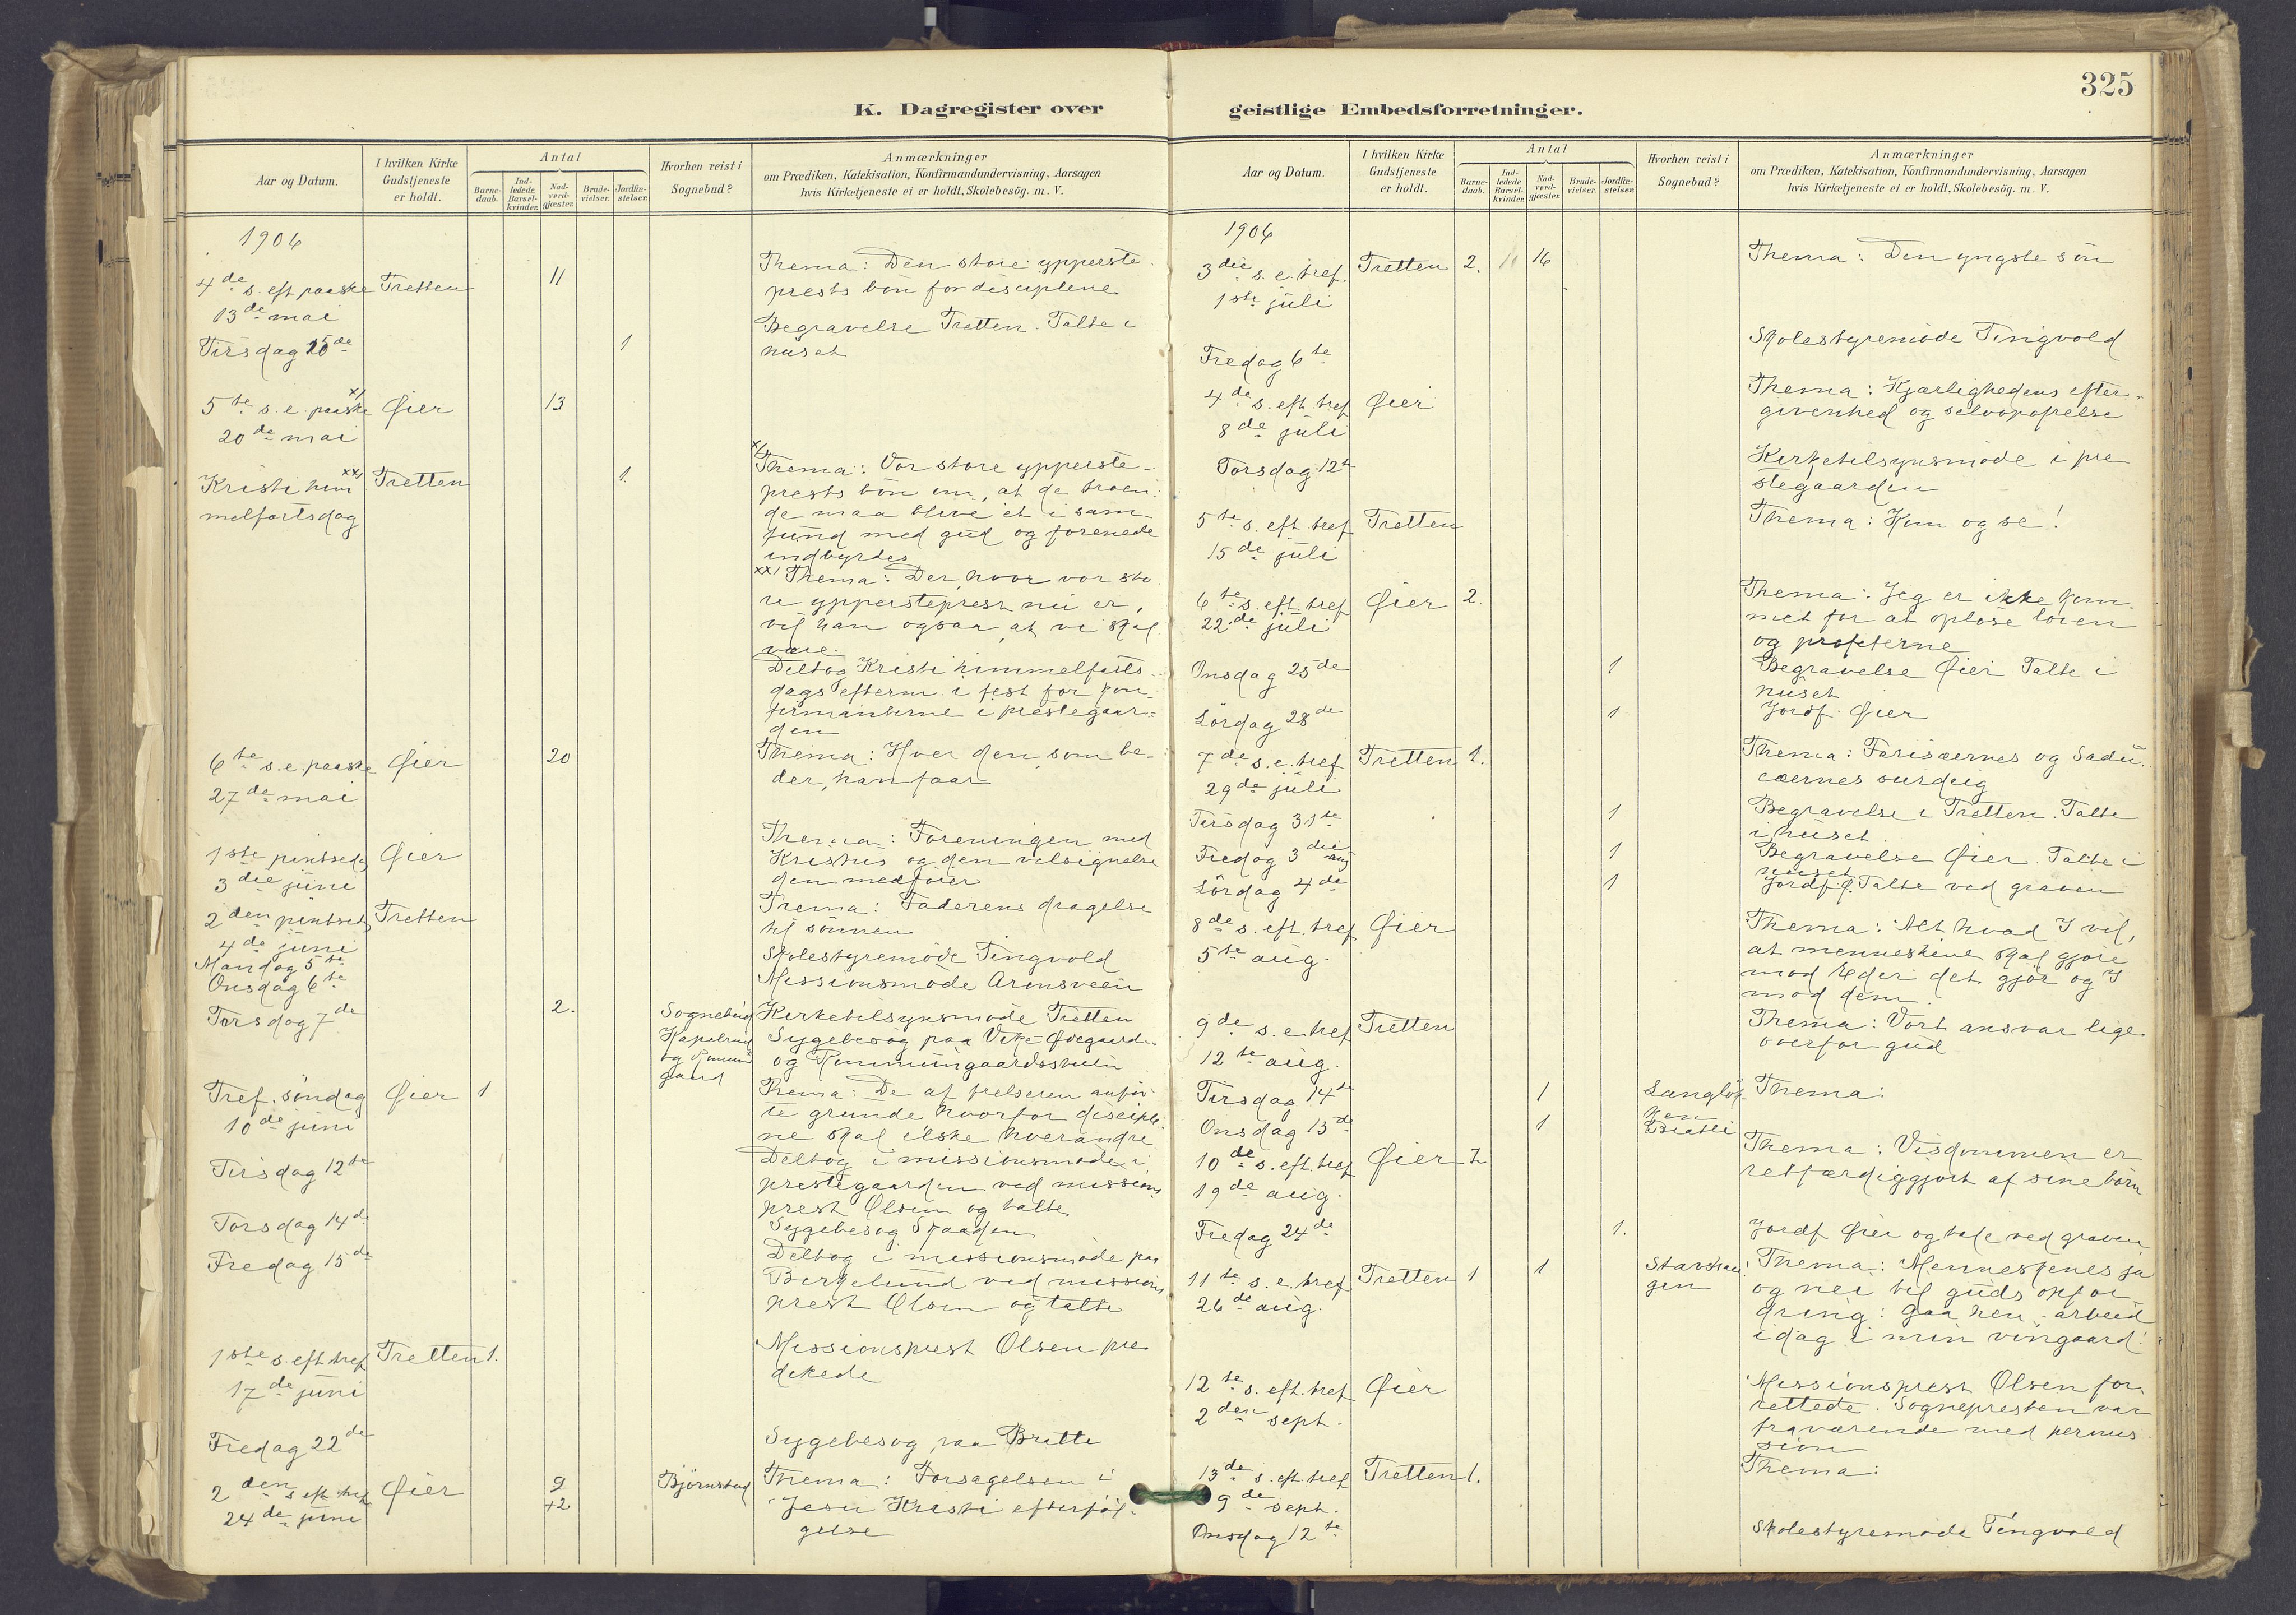 325
K. Dagregister over geistlige Embedsforretninger.
Aar og Datum.
I hvilken Kirke Gudstjeneste er holdt.
Antal
Barne-daab.
Ind-ledede Barsel-kvinder.
Nad-verd-gjæster.
Brude-vielser.
Jordfæ-stelser.
Hvorhen reist i Sognebud?
Anmærkninger
om Prædiken, Katekisation, Konfirmandundervisning, Aarsagen
hvis Kirketjeneste ei er holdt, Skolebesög. m. V.
1906
4de s. eft paaske Tretten 11 Thema: Den store ypperste-
13de mai prests bön for disciplene
Tirsdag 15de 1 Begravelse Tretten. Talte i
huset
5te s. e. paaske x) Øier 13
20de mai
Kristi him xx) Tretten 1.
melfartsdag
x) Thema: Vor store ypperste-
prests bön om, at de troen-
de maa blive et i sam-
fund med gud og forenede
indbyrdes
xx) Thema: Der, hvor vor sto-
re yppersteprest nu er,
vil han ogsaa, at vi skal
være.
Deltog Kristi himmelfarts-
dags efterm. i fest for kon-
firmanterne i prestegaar-
den
6te s. e. paaske Øier 20 Thema: Hver den, som be-
27de mai der, han faar
1ste pintsedag Øier Thema: Foreningen med
3die juni Kristus og den velsignelse
den medfører
2den pintsed. Tretten Thema: Faderens dragelse
4de juni til sönnen
Mandag 5te Skolestyremöde Tingvold
Onsdag 6te Missionsmöde Arnsveen
Torsdag 7de 2. Sognebud Kirketilsynsmöde Tretten
Sygebesög paa
og
Tref. söndag Øier 1 Thema: De af frelseren anför-
10de juni te grunde hvorfor discipli-
ne skal elske hverandre
Tirsdag 12te Deltog i missionsmöde i
prestegaarden ved missions
prest Olsen og talte
Torsdag 14de Sygebesög Skaaden
Fredag 15de Deltog i missionsmöde paa
Birkelund ved missions
prest Olsen og talte
1ste s. eft tref Tretten 1. Missionsprest Olsen præ-
17de juni dikede
Fredag 22de Sygebesög paa
2den s. eft tref Øier 9 Björnstad Thema: Forsagelsen i
24de juni +2 Jesu Kristi efterföl-
gelse
Aar og Datum.
I hvilken Kirke Gudstjeneste er holdt.
Antal
Barne-daab.
Ind-ledede Barsel-kvinder.
Nad-verd-gjæster.
Brude-vielser.
Jordfæ-stelser.
Hvorhen reist i Sognebud?
Anmærkninger
om Prædiken, Katekisation, Konfirmandundervisning, Aarsagen
hvis Kirketjeneste ei er holdt, Skolebesög. m. V.
1906
3die s. e. tref. Tretten 2. 16 Thema: Den yngste sön
1ste juli
Fredag 6te Skolestyremöde Tingvold
4de s. eft. tref Øier Thema: Kjærlighedens efter-
8de juli givenhed og selvopofrelse
Torsdag 12te Kirketilsynsmöde i pre
stegaarden
5te s. eft tref Tretten Thema: Kom og se!
15de juli
6te s. eft. tref Øier 2. Thema: Jeg er ikke kom-
22de juli met for at oplöse loven
og profeterne
Onsdag 25de 1 Begravelse Øier Talte i
huset
Lördag 28de 1 Jordf. Øier
7de s. e. tref Tretten 1. Thema: Farisæernes og Sadu-
29de juli cæernes surdeig
Tirsdag 31te 1 Begravelse i Tretten. Talte
i huset
Fredag 3die aug 1 Begravelse Øier. Talte i
huset
Lördag 4de 1 Jordf. Ø. Talte ved graven
8de s. eft. tref Øier Thema: Alt hvad I vil,
5te aug. at menneskene skal gjöre
mod Eder det gjör og I
mod dem.
9de s. e tref Tretten Thema: Vort ansvar lige-
12te aug. overfor gud
Tirsdag 14de 1 Thema:
Onsdag 15de 1
10de s. eft. tref Øier 2 Thema: Visdommen er
19de aug. retfærdiggjort af sine börn
Fredag 24de 1. Jordf Øier og tale ved graven
11te s. e. tref Tretten 1 1 Thema: Menneskenes ja
26de aug. og nei til guds opfor-
dring: Gaa hen, arbeid
idag i min vingaard!
12te s. eft. tref Øier Missionsprest Olsen for-
2den sept. rettede. Sognepresten var
fraværende med permis
sion
13de s. eft. tref Tretten 1. Thema:
9de sept.
Onsdag 12te Skolestyremöde Tingvold